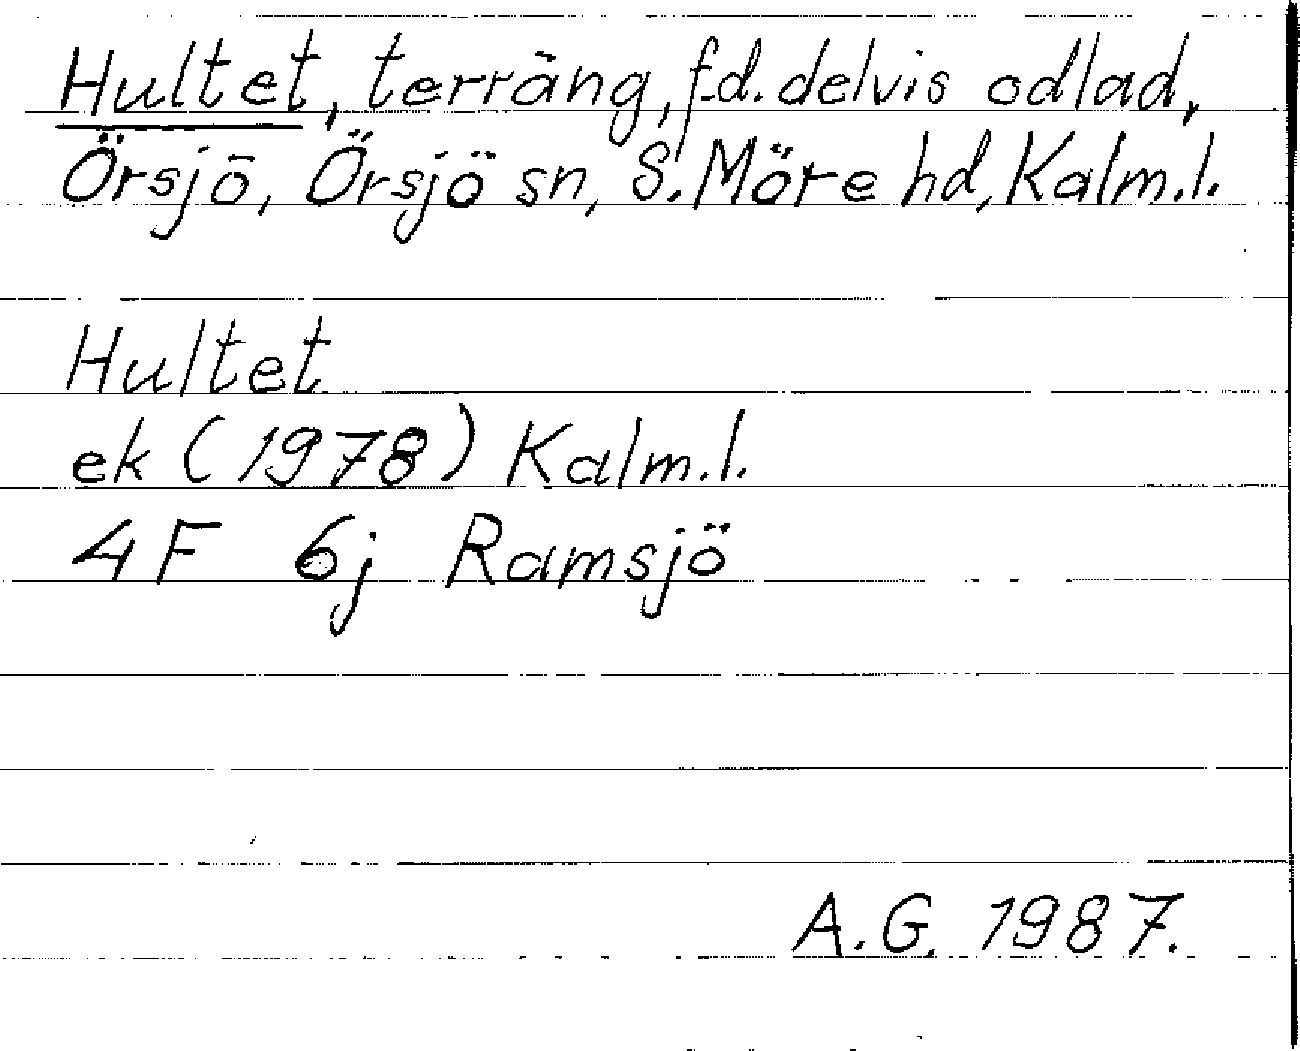 Hultet, terräng, f.d. delvis odlad,
Örsjö, Örsjö sn, S. Möre hd, Kalm.l.
Hultet
ek (1978) Kalm.l.
4F 6j Ramsjö
A.G. 1987.